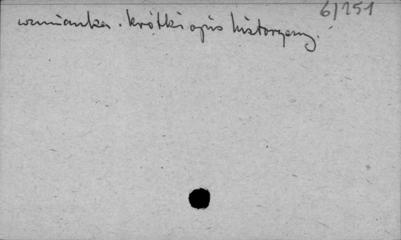 6/151
wzmianka. krótki opis historyczny.